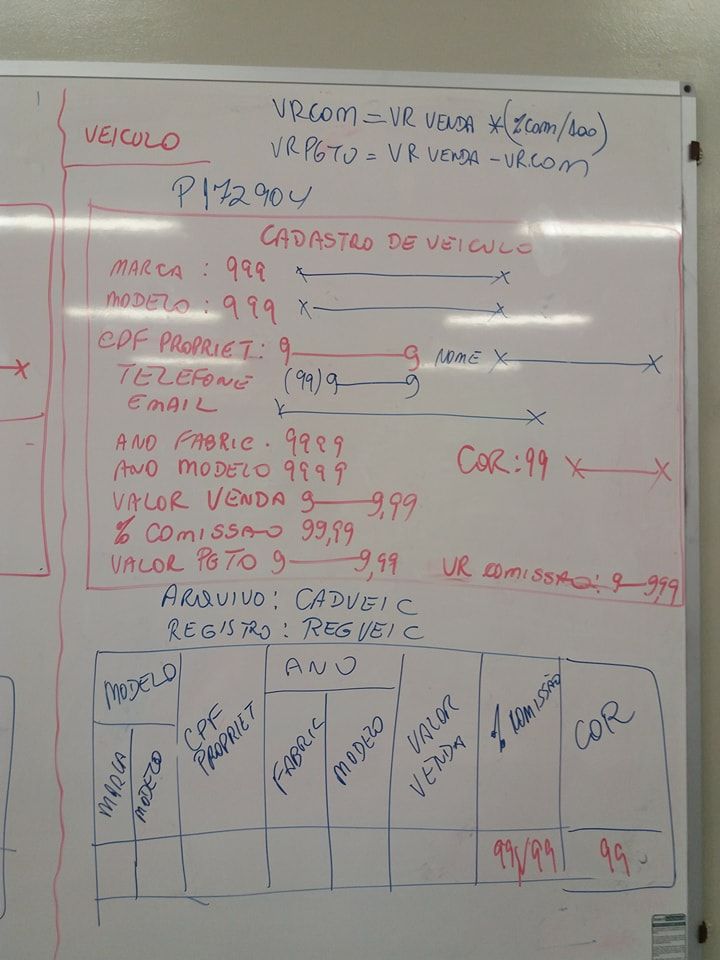 VEICULO
VRCOM = VR VENDA * (%COM/100)
VRPGTO = VR VENDA - VR.COM
P172904
CADASTRO DE VEICULO
MARCA : 999 X——X
MODELO : 999 X——X
CPF PROPRIET: 9——9 NOME X——X
TELEFONE (99)9——9
EMAIL X——X
ANO FABRIC. 9999
ANO MODELO 9999 COR: 99 X——X
VALOR VENDA 9——9,99
% COMISSAO 99,99
VALOR PGTO 9——9,99 VR COMISSAO: 9—999
ARQUIVO: CADVEIC
REGISTRO: REGVEIC
MODELO
MARCA
MODELO
CPF PROPRIET
ANO
FABRIC
MODELO
VALOR VENDA
% COMISSÃO
COR
99V99
99